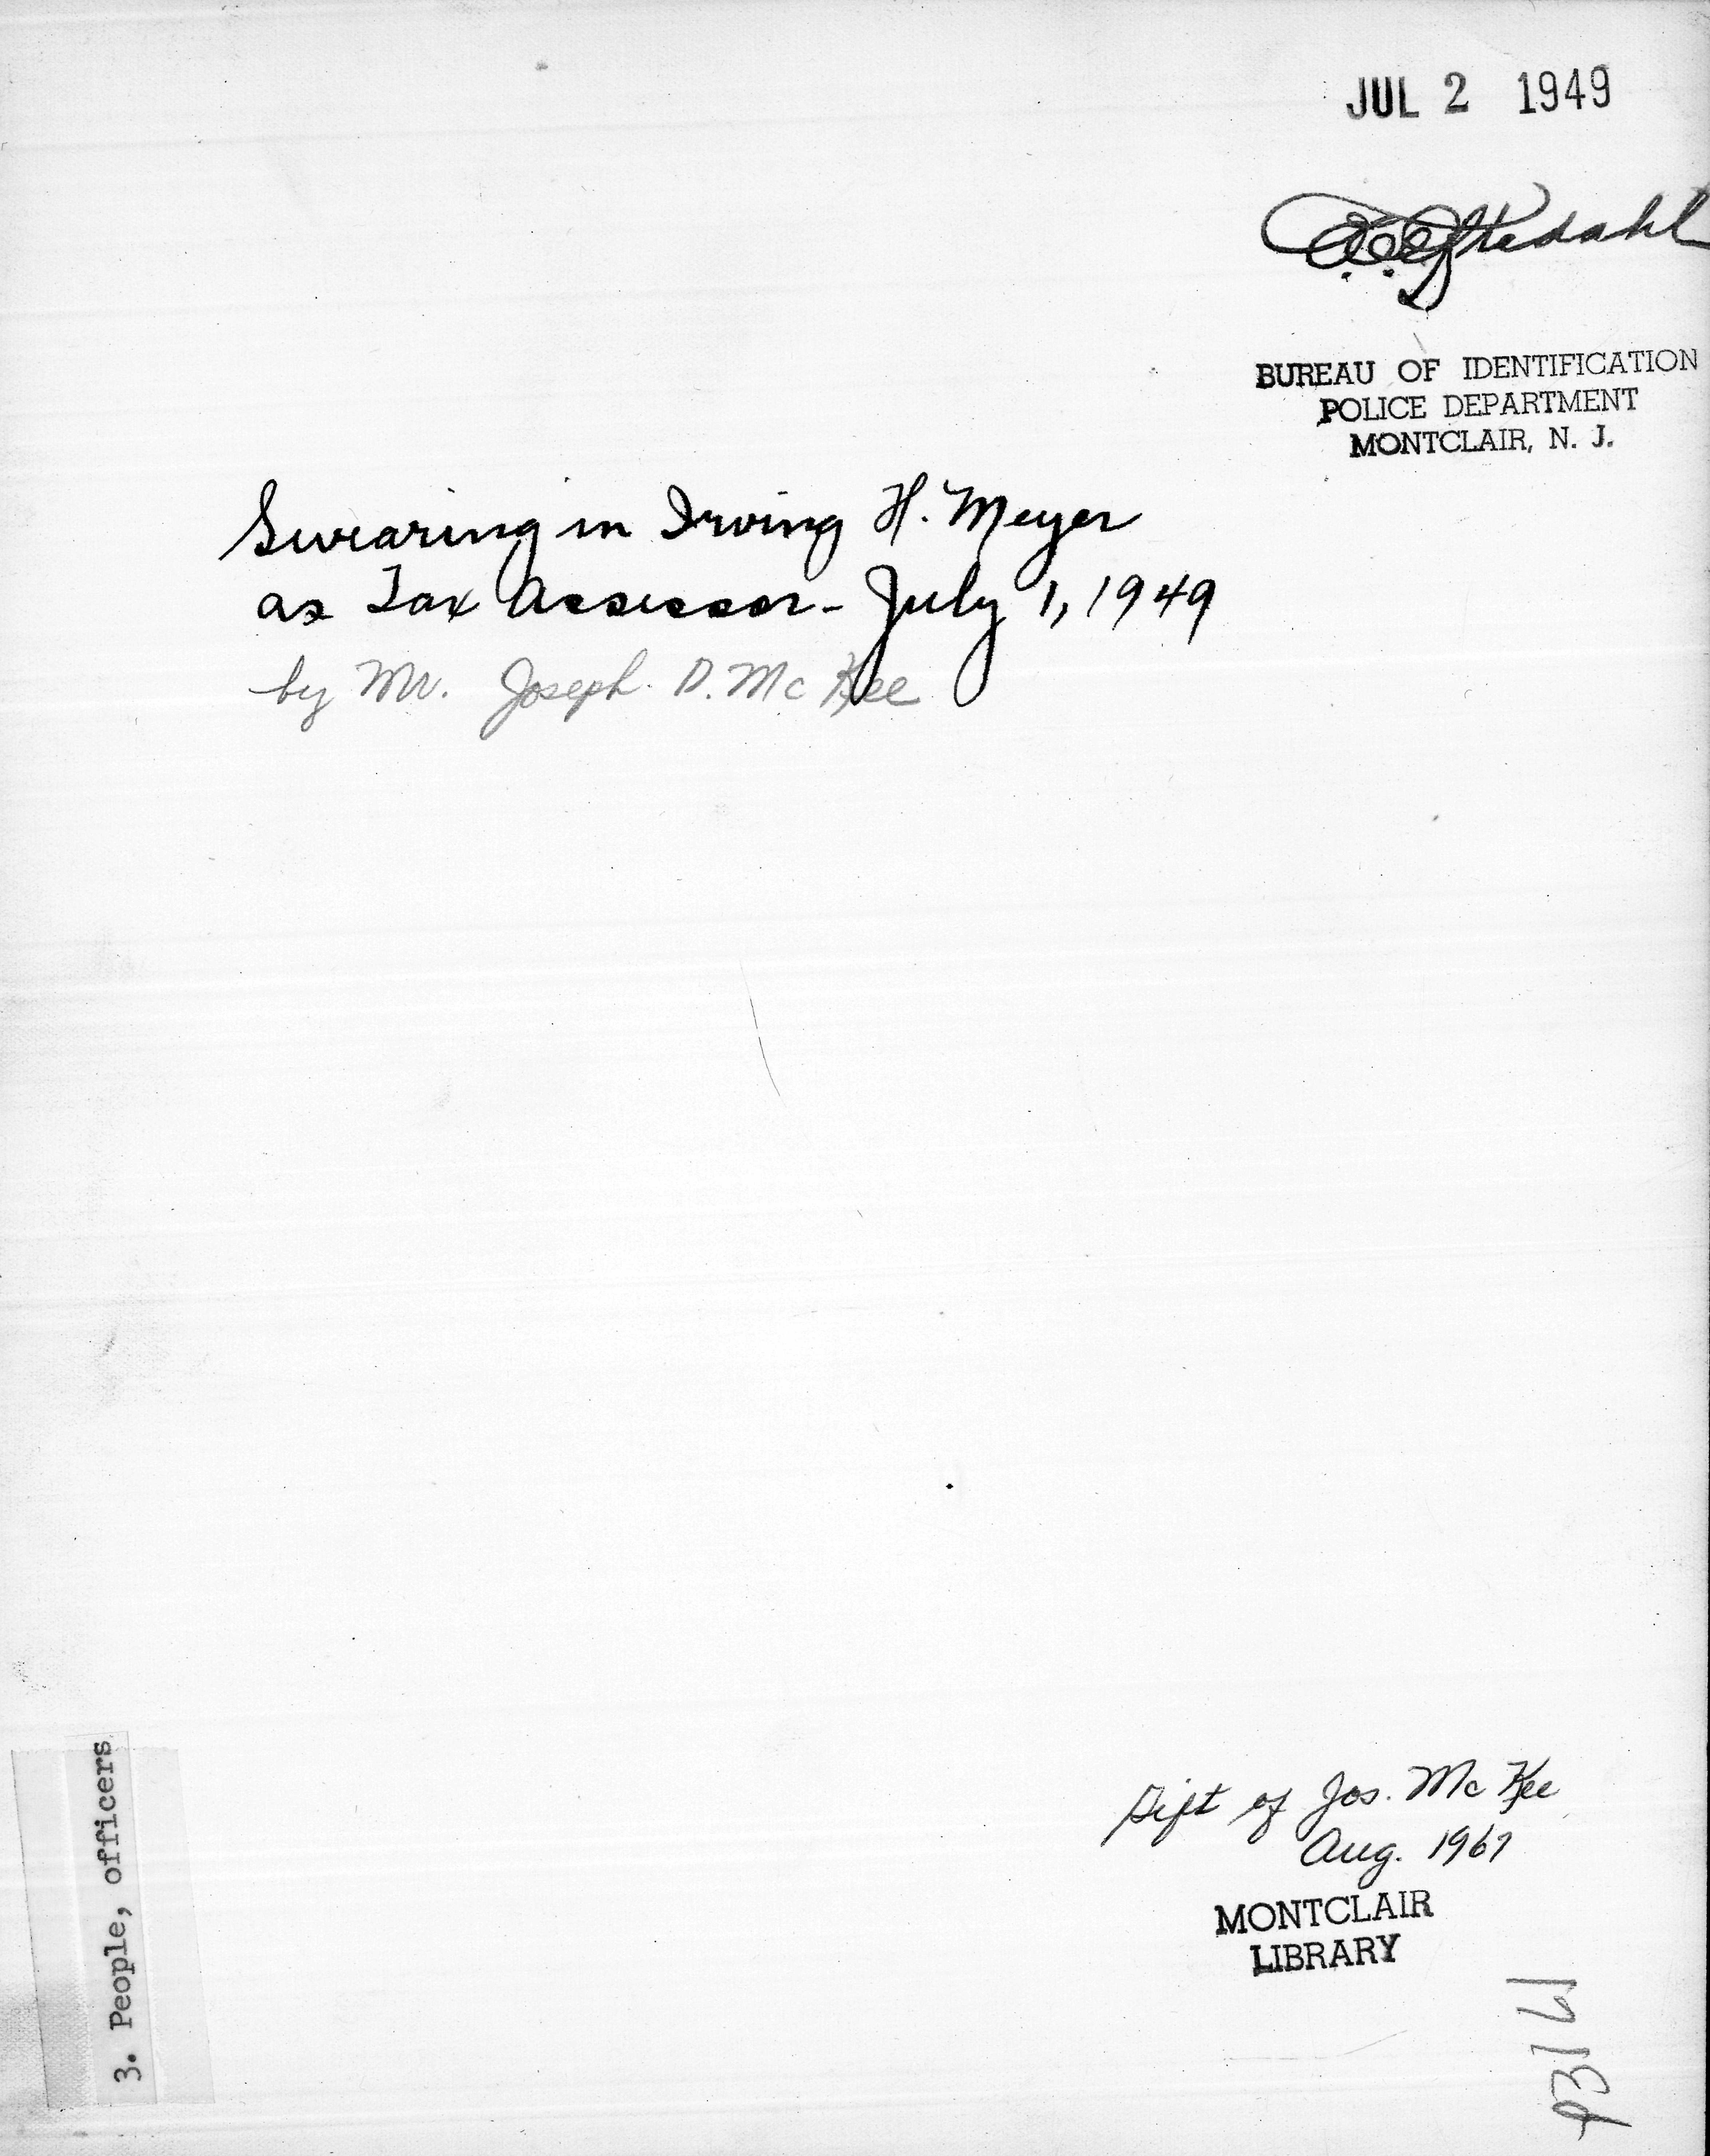 JUL 2 1949
BUREAU OF IDENTIFICATION
POLICE DEPARTMENT
MONTCLAIR, N. J.
Swearing in Irving H. Meyer
as Tax Assessor - July 1, 1949
by Mr. Joseph D. McKee
3. People, officers
Gift of Jos. McKee
Aug. 1967
MONTCLAIR
LIBRARY